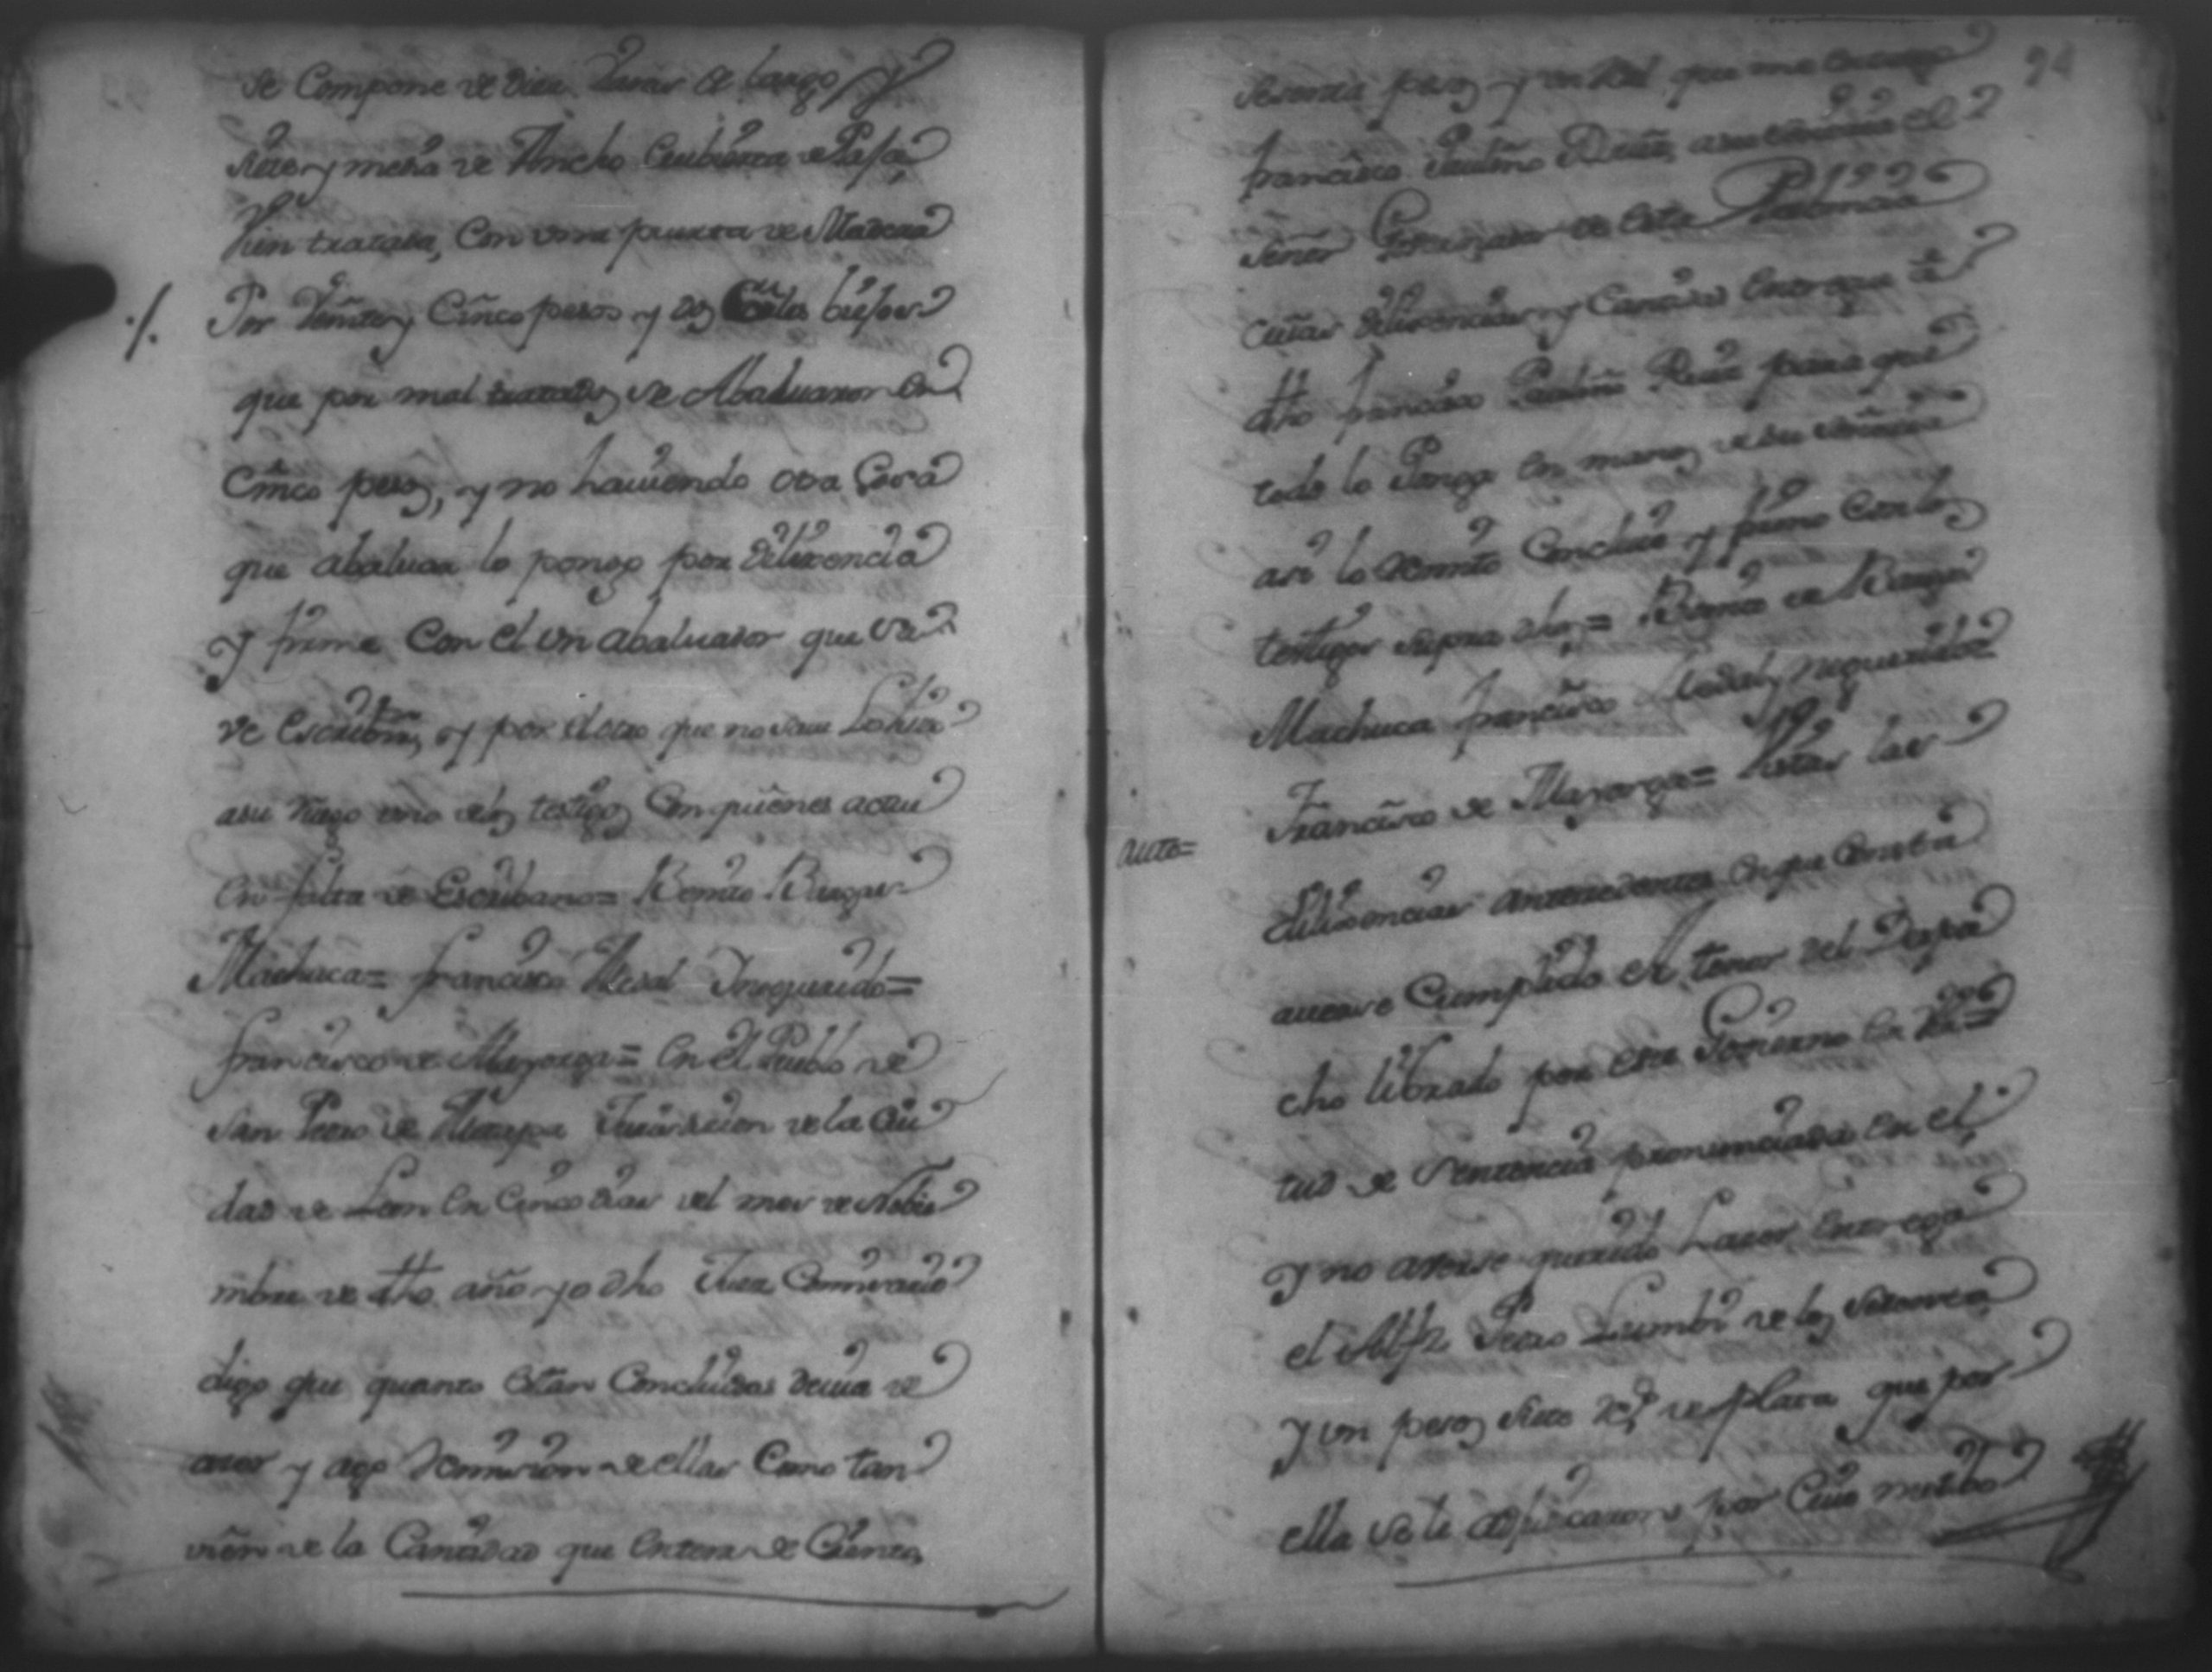 se Compone de diez Varas de largo, y
siete y media de Ancho Cubierta de Paja
bien tratada, Con una puerta de Madera
./. Por Veinte y Cinco pesos y dos
que por mal tratados se Abaluaron en
Cinco pesos, y no haviendo otra Cosa
que abaluar lo pongo por dilixencia
y firme Con el un abaluador que save
de escribir, y por el otro que no save Lo hizo
a su ruego uno de los testigos Con quienes actuo
en falta de Escribano= Benito Burgos
Machuca= francisco Leal Ynsquierdo=
francisco de Mayorga= En el Pueblo de
San Pedro de Metapa Jurisdicion de la Ciu
dad de Leon en Cinco dias del mes de Nobie
mbre de dho año yo dho Juez Comisario
digo que quanto estan Concluidas devia de
aser y ago Remision de ellas Como tan
vien de la Cantidad que entera de Ciento
94
sesenta pesos y un Real que me entrego
francisco Paulino Ruiz, a su señoria el
señor Governador de esta Provincia
cuias dilixencias y Cantidad entregue a
dho francisco Paulino Ruiz para que
todo lo Ponga en manos de su señoria
asi lo Remito Concluio y firmo Con los
testigos supra dhos= Benito de Burgos
Machuca francisco Leal Ynsquierdo=
Francisco de Mayorga= Vistas las
auto=
dilixencias antecedentes en que Consta
averse Cumplido el tenor del Despa
cho librado por este Govierno en Vir=
tud de Sentencia pronunciada en el
y no averse querido hacer entrega
el Alfz Pedro de los sesenta
y un pesos siete Rs de plata que por
ella se le aplicaron por Cuio motibo